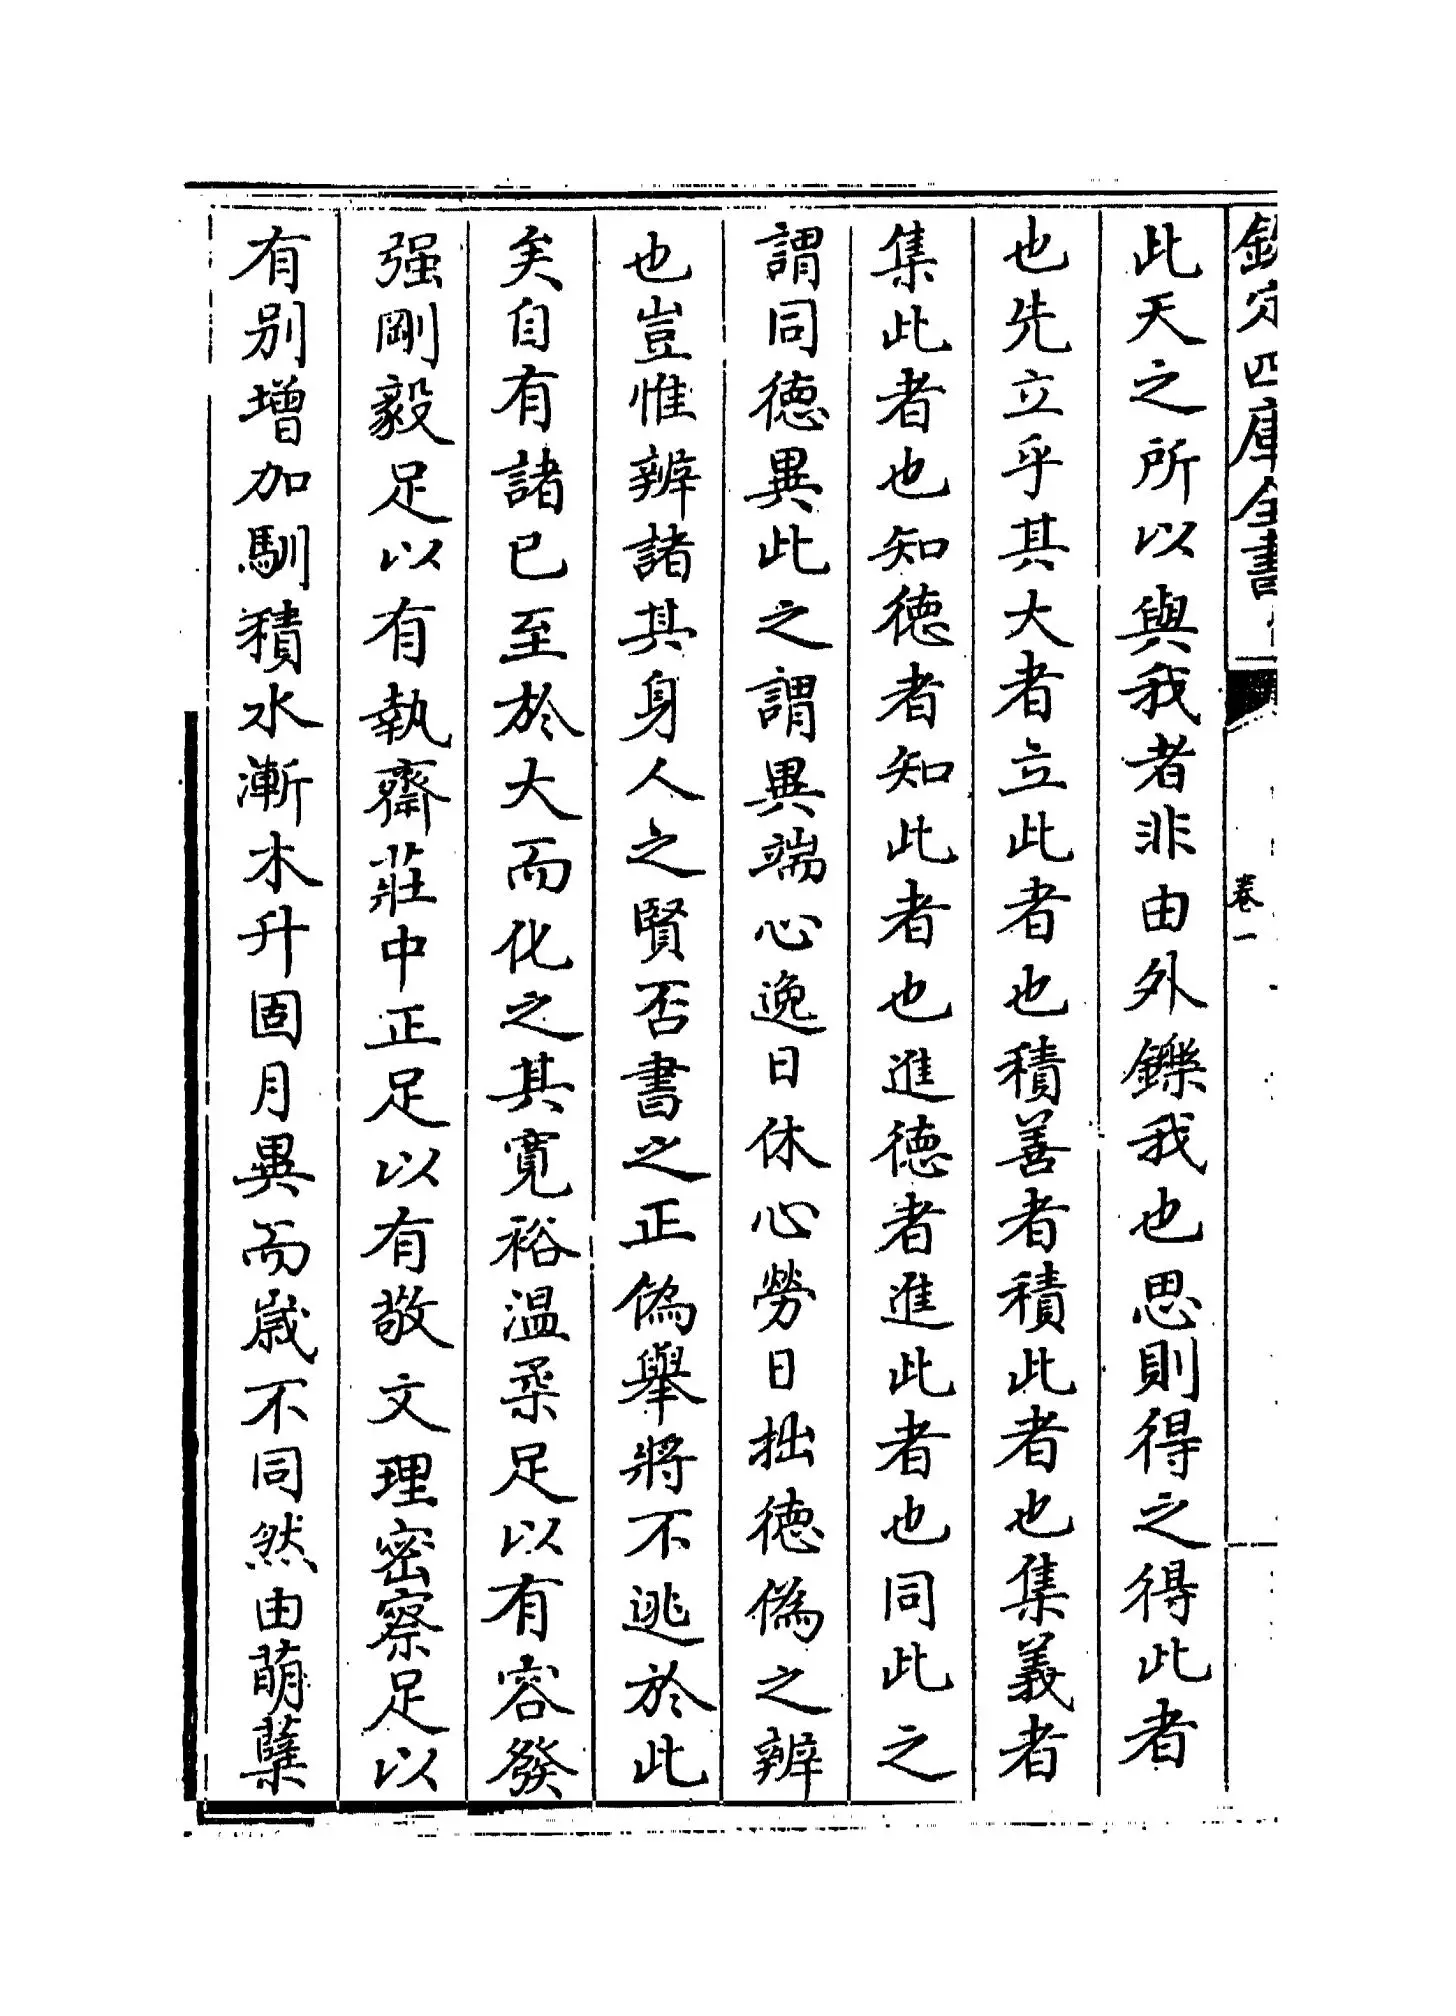 欽定四庫全書
卷一
此天之所以與我者非由外鑠我也思則得之得此者
也先立乎其大者立此者也積善者積此者也集義者
集此者也知德者知此者也進德者進此者也同此之
謂同德異此之謂異端心逸日休心勞日拙德偽之辨
也豈惟辨諸其身人之賢否書之正偽舉將不逃於此
矣自有諸已至於大而化之其寛裕温柔足以有容發
强剛毅足以有執齋莊中正足以有敬文理密察足以
有别增加馴積水漸木升固月異而嵗不同然由萌蘖